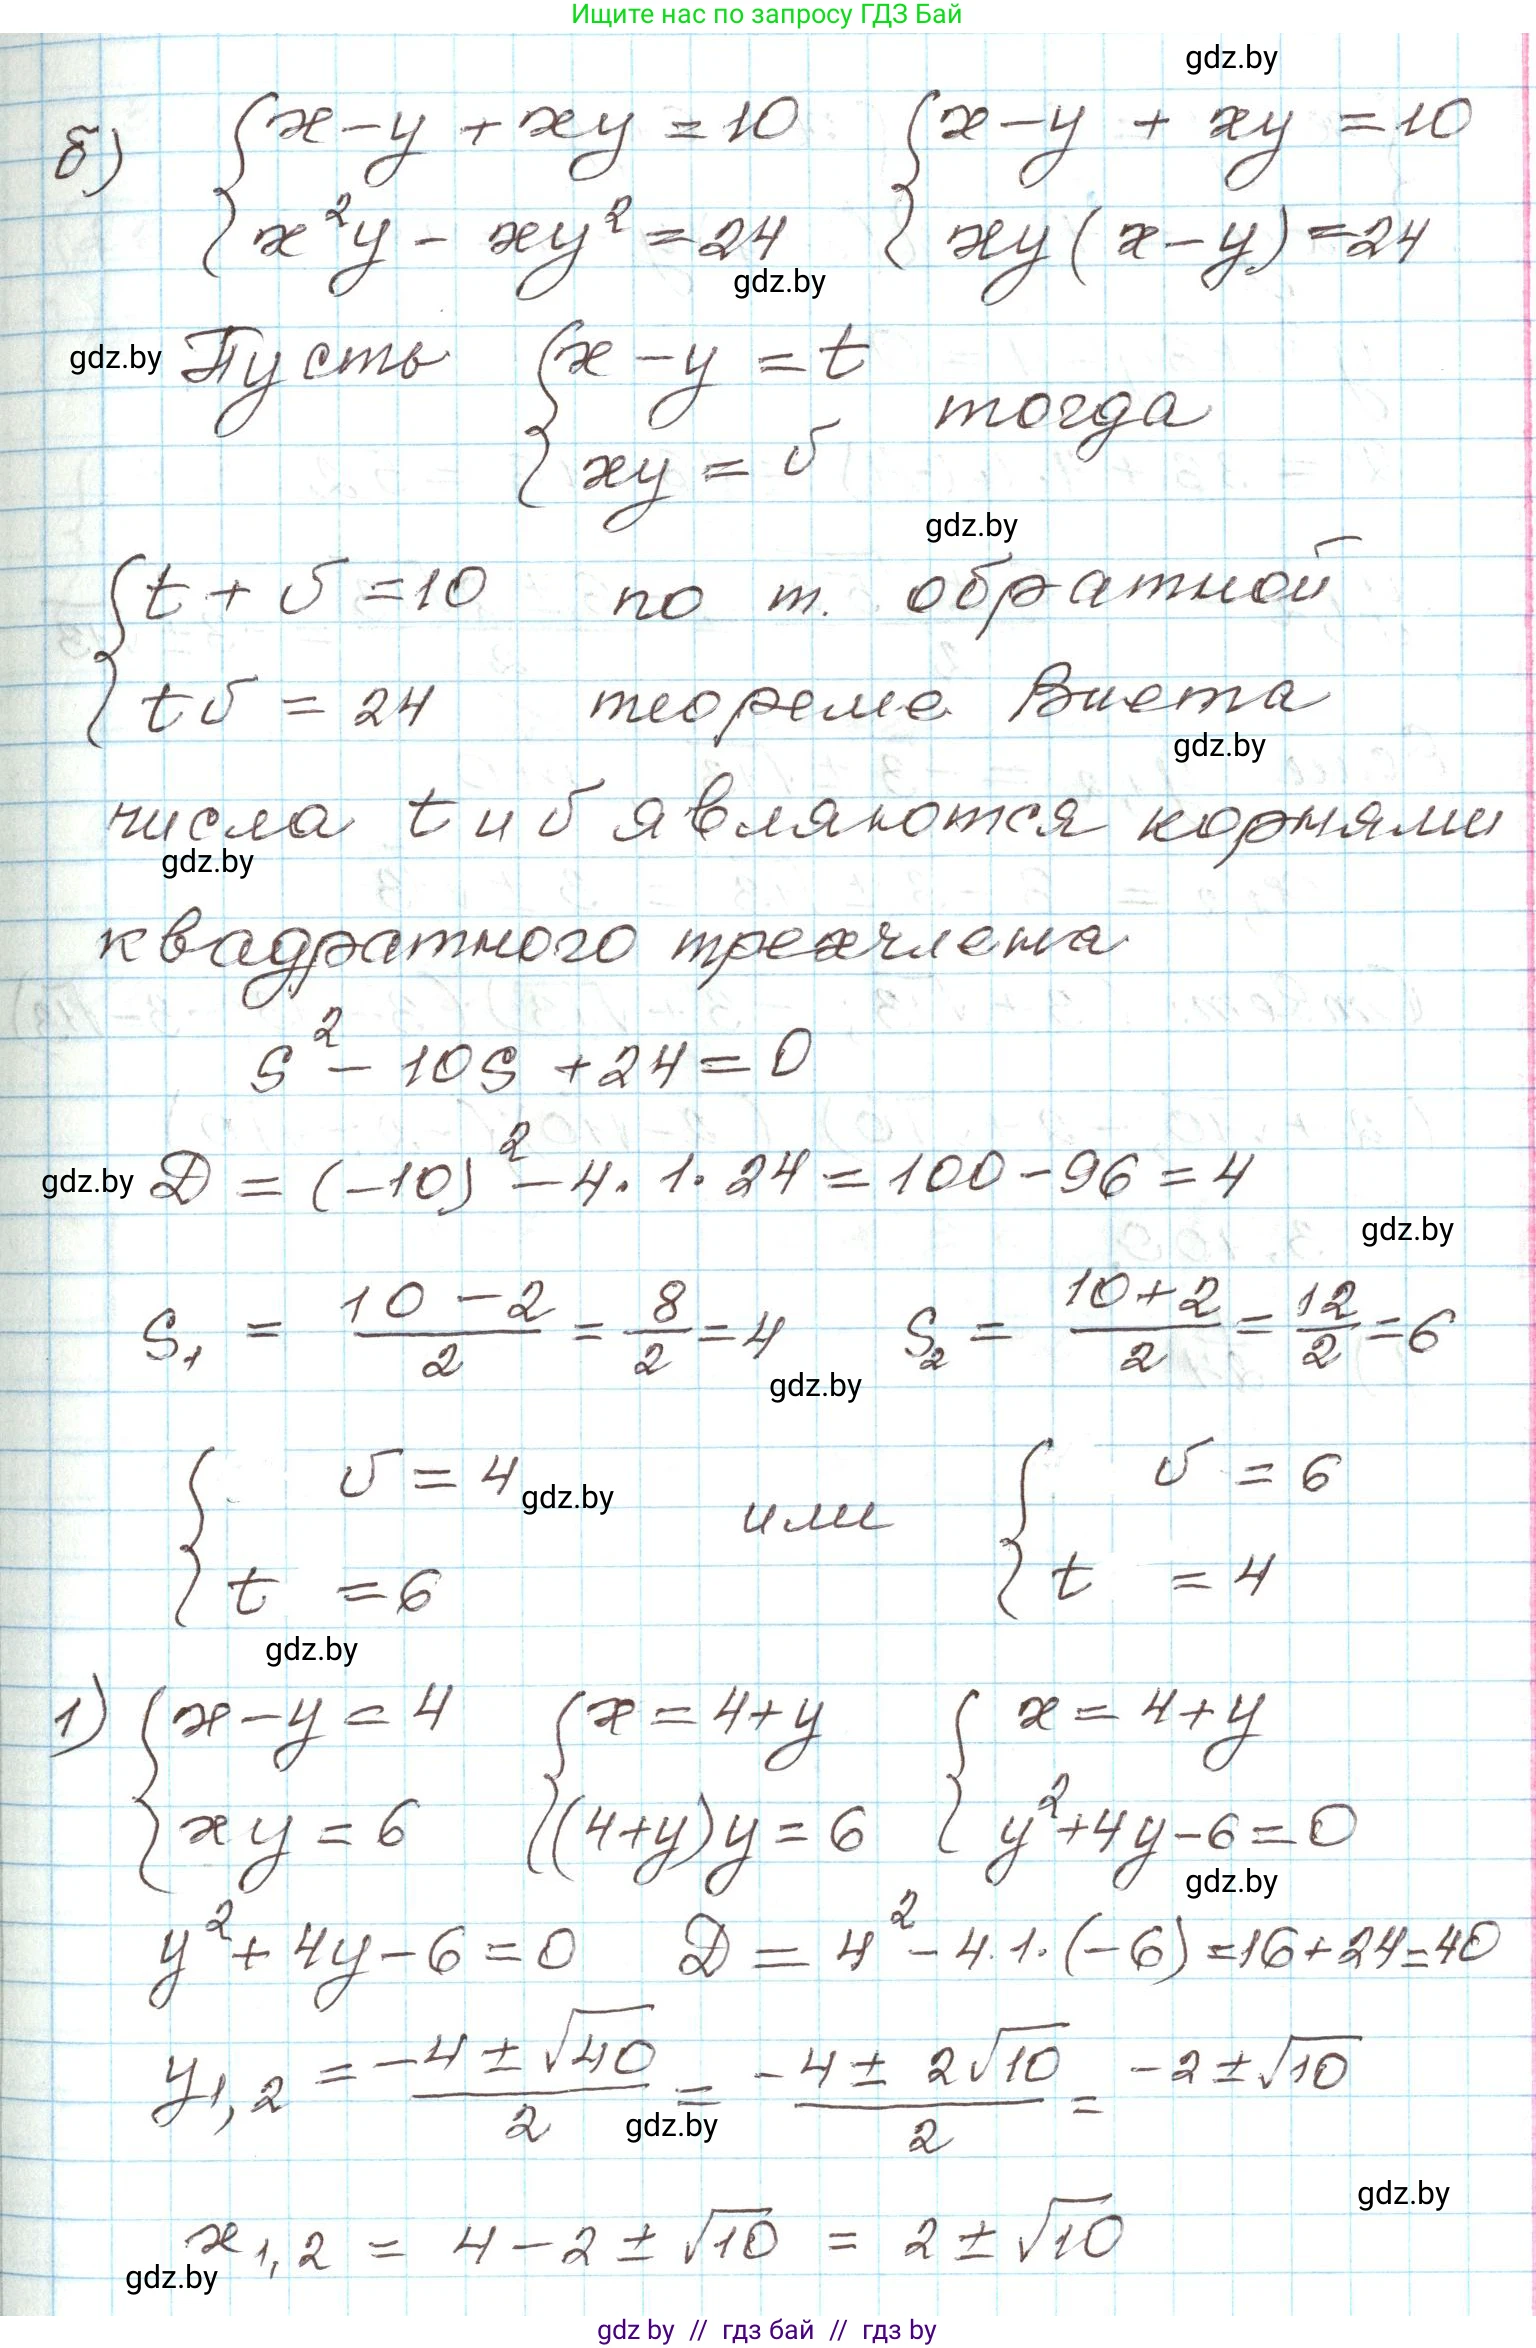 Ищите нас по запросу ГДЗ Бай
gdz.by
б) { x − y + xy = 10 { x − y + xy = 10
{ x²y − xy² = 24 { xy(x − y) = 24
gdz.by
gdz.by Пусть { x − y = t
тогда
{ xy = б
gdz.by
{ t + б = 10 по т. обратной
{ tб = 24 теореме Виета
gdz.by
числа t и б являются корнями
gdz.by
квадратного трехчлена
S² − 10S + 24 = 0
gdz.by D = (−10)² − 4·1·24 = 100 − 96 = 4
gdz.by
S₁ = (10 − 2)/2 = 8/2 = 4 S₂ = (10 + 2)/2 = 12/2 = 6
gdz.by
{ б = 4 gdz.by или { б = 6
{ t = 6 { t = 4
gdz.by
1) { x − y = 4 { x = 4 + y { x = 4 + y
{ xy = 6 { (4 + y)y = 6 { y² + 4y − 6 = 0
gdz.by
y² + 4y − 6 = 0 D = 4² − 4·1·(−6) = 16 + 24 = 40
y₁,₂ = (−4 ± √40)/2 = (−4 ± 2√10)/2 = −2 ± √10
gdz.by
gdz.by
x₁,₂ = 4 − 2 ± √10 = 2 ± √10
gdz.by
gdz by // гдз бай // гдз by